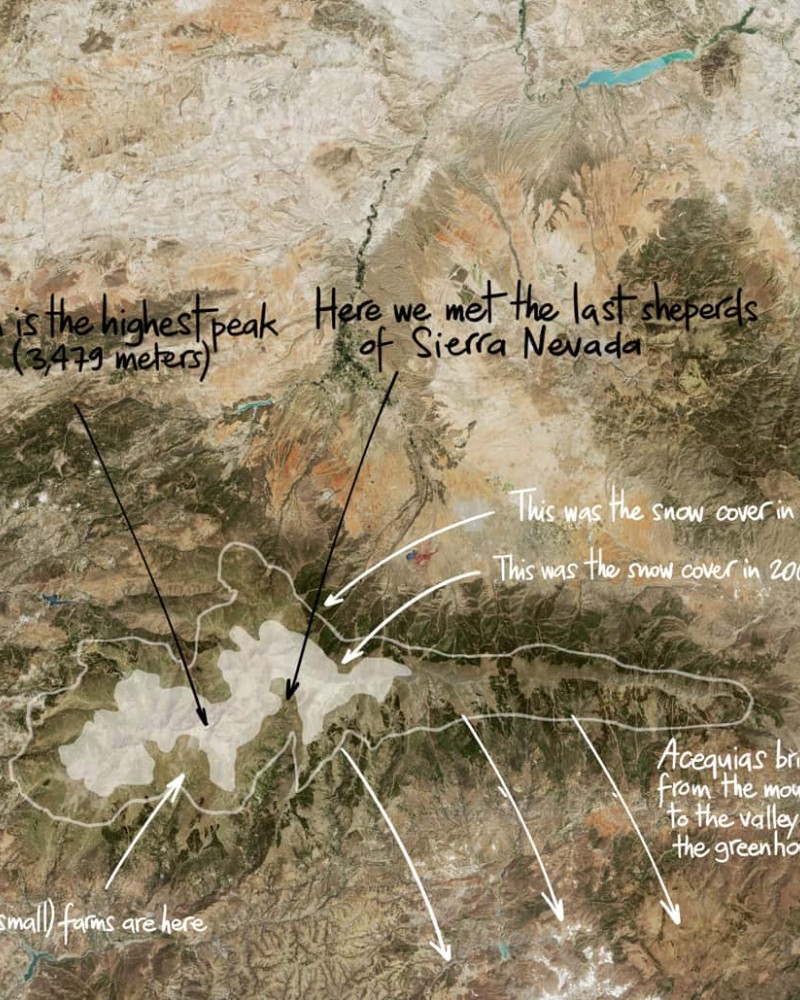 is the highest peak
(3,479 meters)
Here we met the last sheperds
of Sierra Nevada
This was the snow cover in
This was the snow cover in
Acequias
from the
to the valley
the
small) farms are here